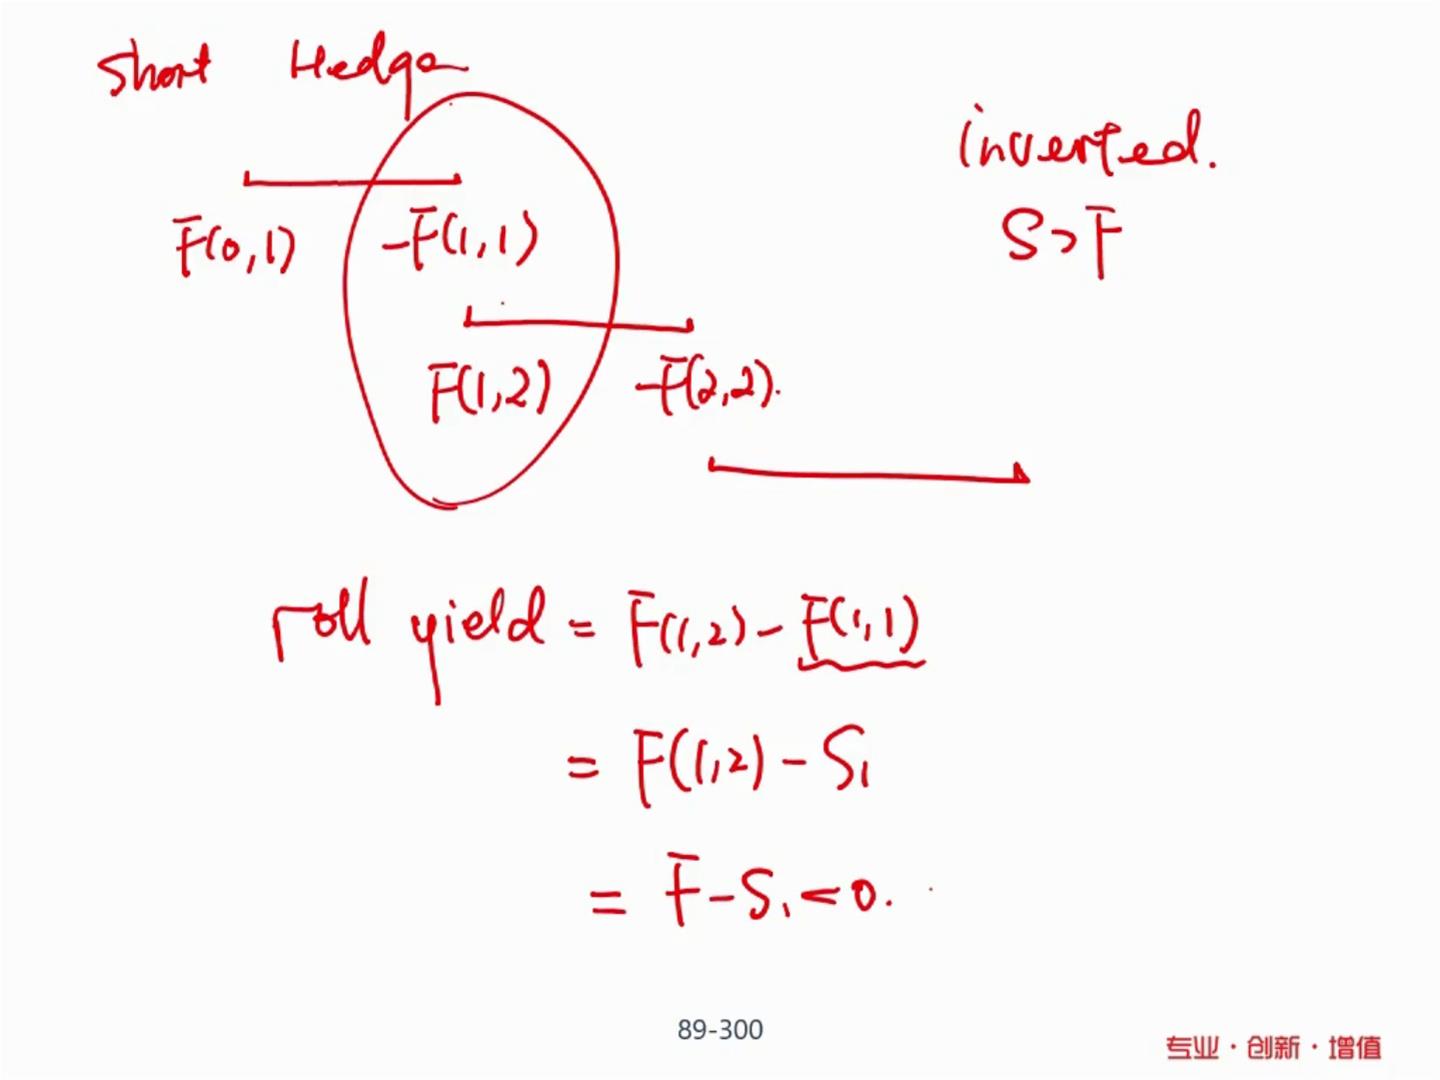 Short Hedge
inverted.
S>F
F(0,1) -F(1,1)
F(1,2) -F(2,2).
roll yield = F(1,2) - F(1,1)
= F(1,2) - S₁
= F - S₁ < 0.
89-300
专业·创新·增值